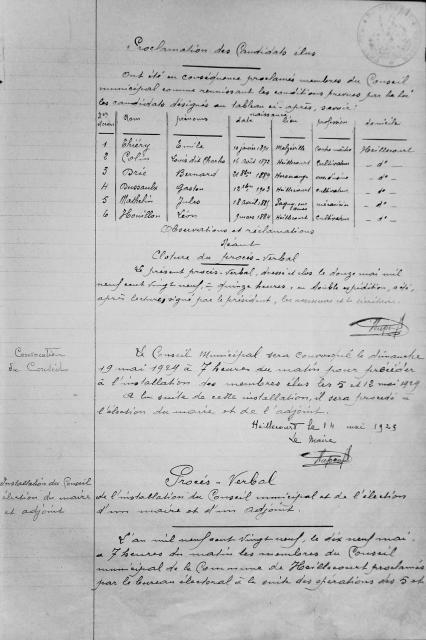 Proclamation des Candidats élus
Ont été en conséquence proclamés membres du Conseil
municipal comme réunissant les conditions prévues par la loi
les candidats désignés au tableau ci-après, savoir:
Nom prénoms date naissance lieu profession domicile
1 Thiéry Emile 10 janvier Heillecourt
2 Colin Louis dit Charles 16 août 1872 Heillecourt Cultivateur -d°-
3 Bernard -d°-
4 Dussaulx Gaston 1903 Heillecourt Cultivateur -d°-
5 Mathelin Jules 18 août -d°-
6 Houillon Léon 9 mars 1884 Heillecourt Cultivateur -d°-
Observations et réclamations
Néant
Clôture du procès-verbal
Le présent procès-verbal, dressé et clos le douze mai mil
neuf cent vingt neuf à quinze heures, en double expédition, a été,
après lecture, signé par le président, les assesseurs et le secrétaire.
Convocation
du Conseil
Le Conseil Municipal sera convoqué le dimanche
19 mai 1929 à 7 heures du matin pour procéder
à l'installation des membres élus les 5 et 12 mai 1929
A la suite de cette installation, il sera procédé à
l'élection du maire et de l'adjoint.
Heillecourt le 14 mai 1929
Le Maire
Installation du Conseil
élection du maire
et adjoint
Procès-Verbal
de l'installation du Conseil municipal et de l'élection
d'un maire et d'un adjoint.
L'an mil neuf cent vingt neuf, le dix neuf mai
à 7 heures du matin les membres du Conseil
municipal de la Commune de Heillecourt proclamés
par le bureau électoral à la suite des opérations des 5 et